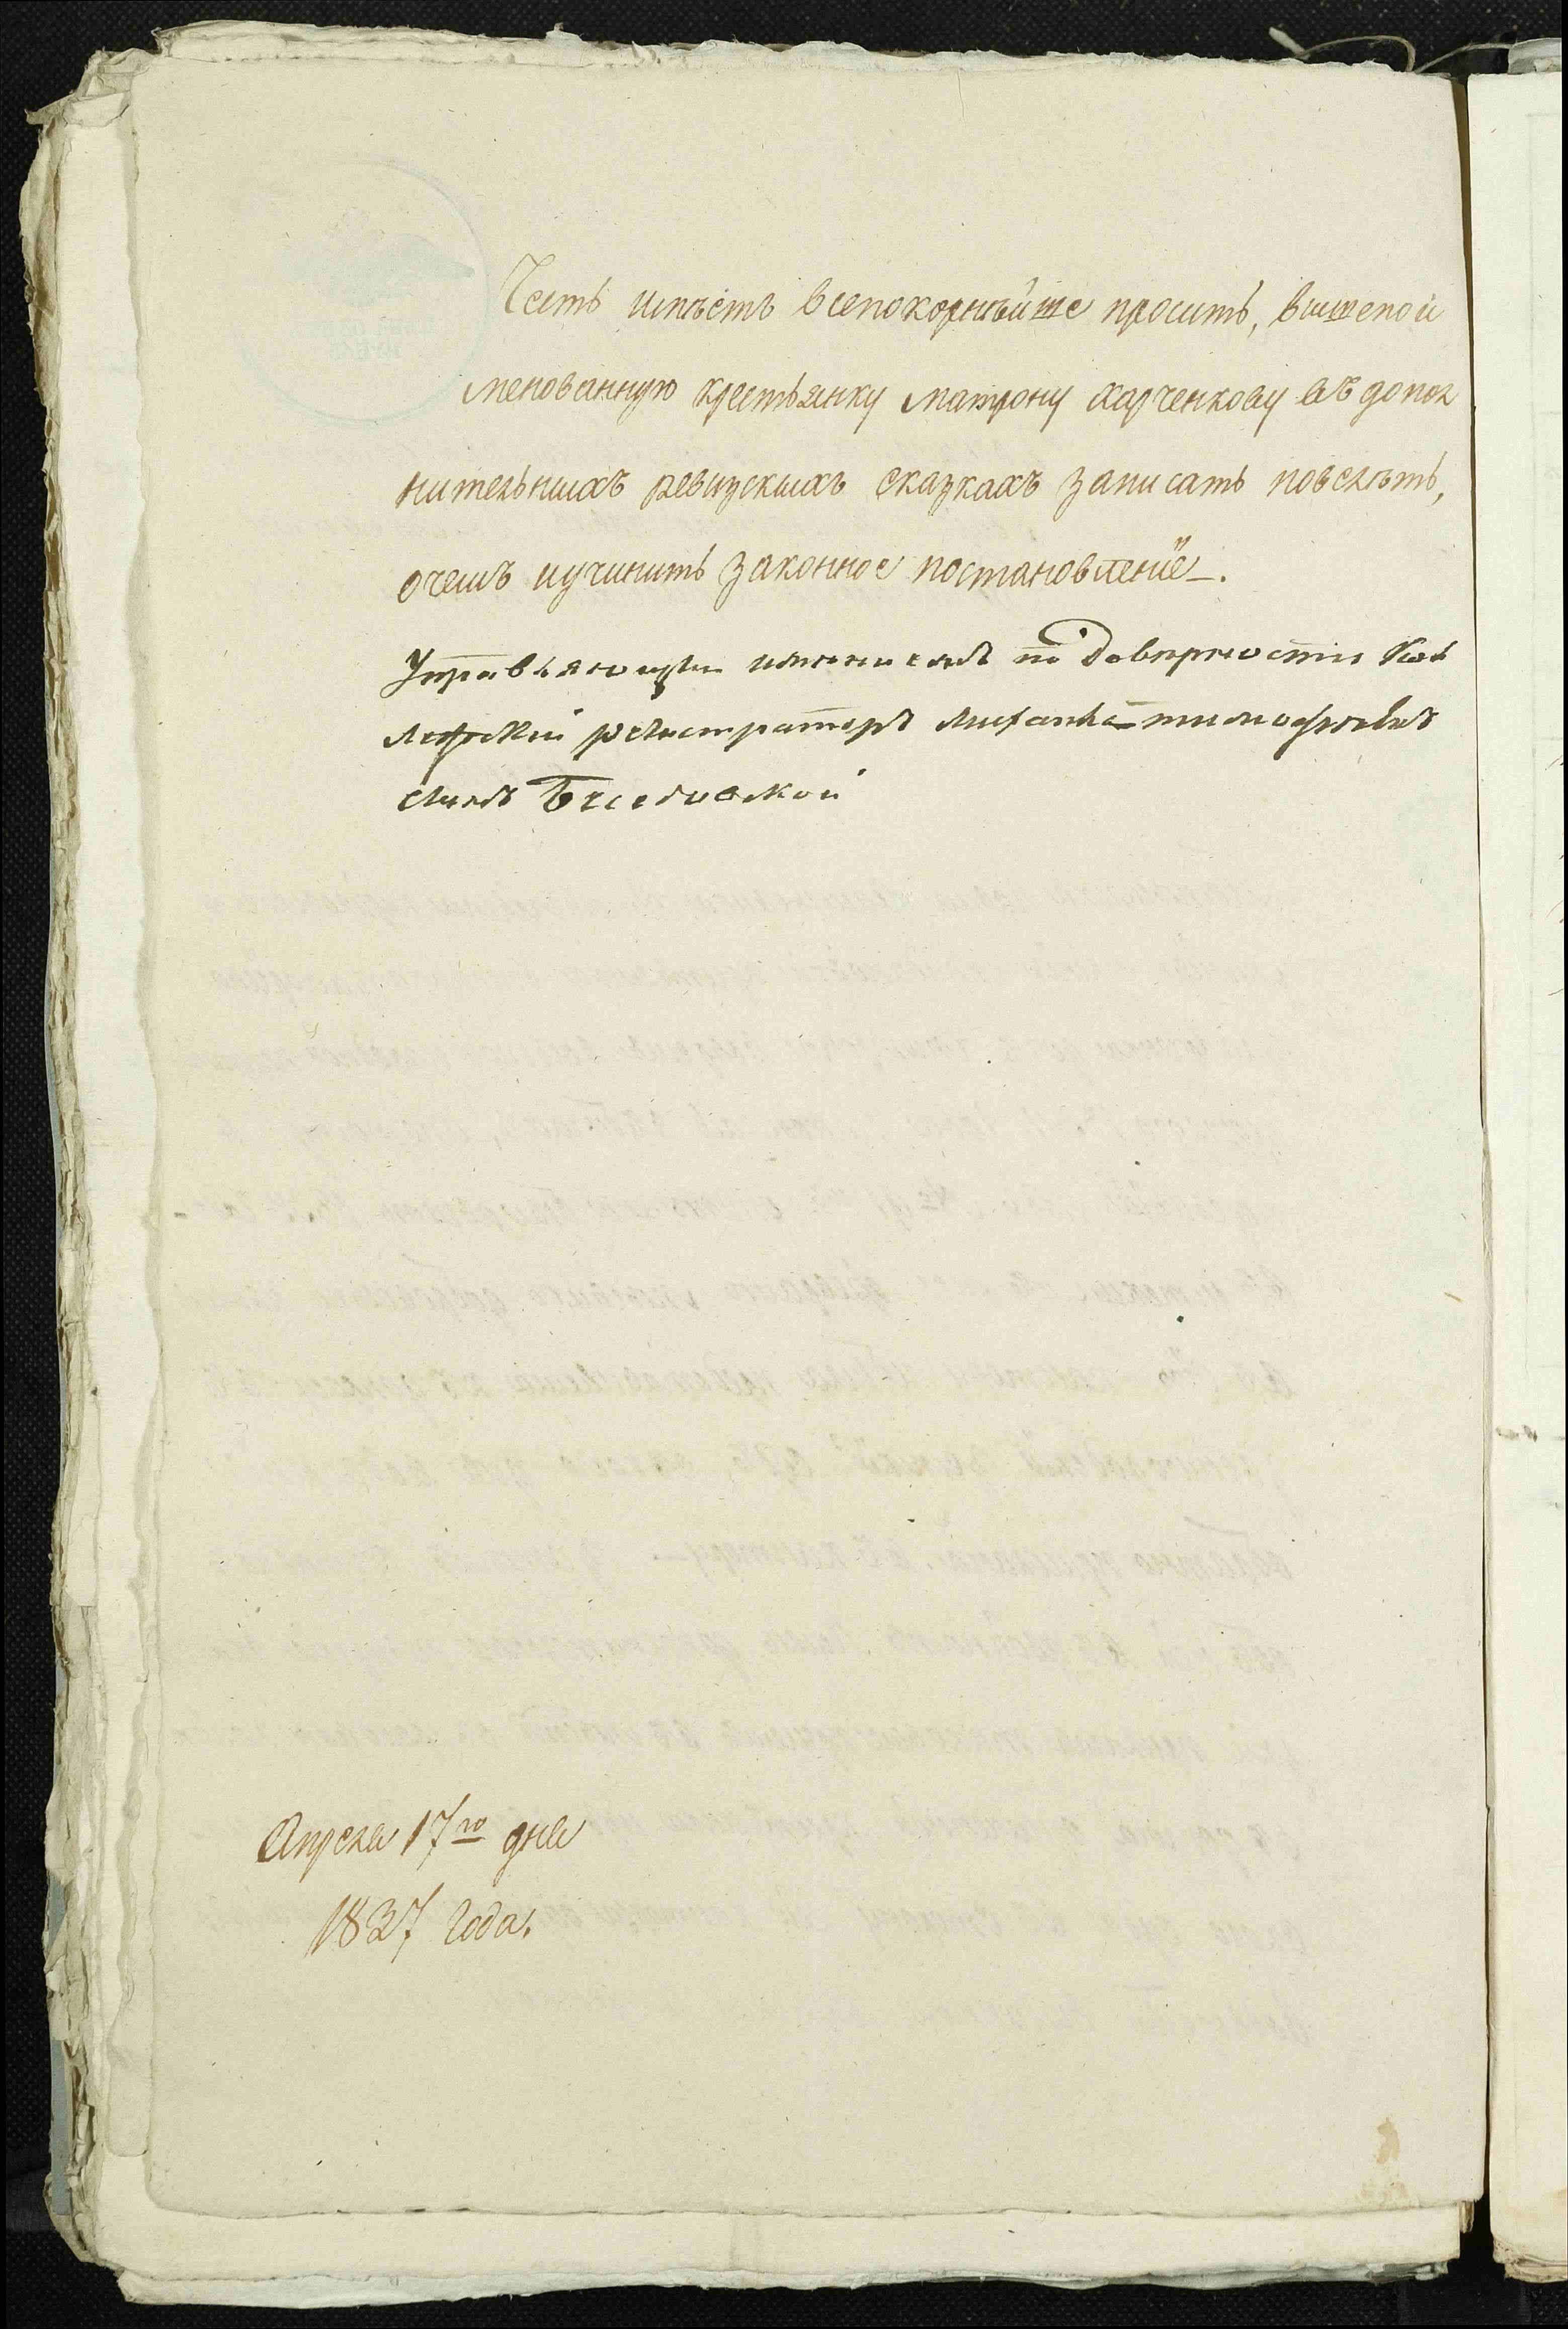 Честь имѣетъ всепокорнѣйше просить, вышепои
менованную крестьянку Матрону Харченкову въ допол
нительныхъ ревизскихъ сказкахъ записать повелѣть,
очемъ иучинить законное постановленіе.
Управляющи имениемъ по Доверености Кол
лежскій регистраторъ Михаила Тимофѣевъ
сынъ Беседовской
Апреля 17го дня
1837 Года.